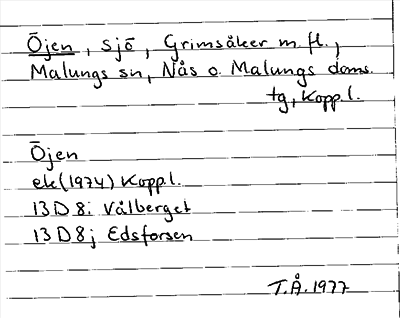 Öjen, sjö, Grimsåker m.fl.,
Malungs sn, Nås o. Malungs doms.
tg, Kopp.l.
Öjen
ek(1974) Kopp.l.
13D 8i Vålberget
13D 8j Edsforsen
T.Å. 1977